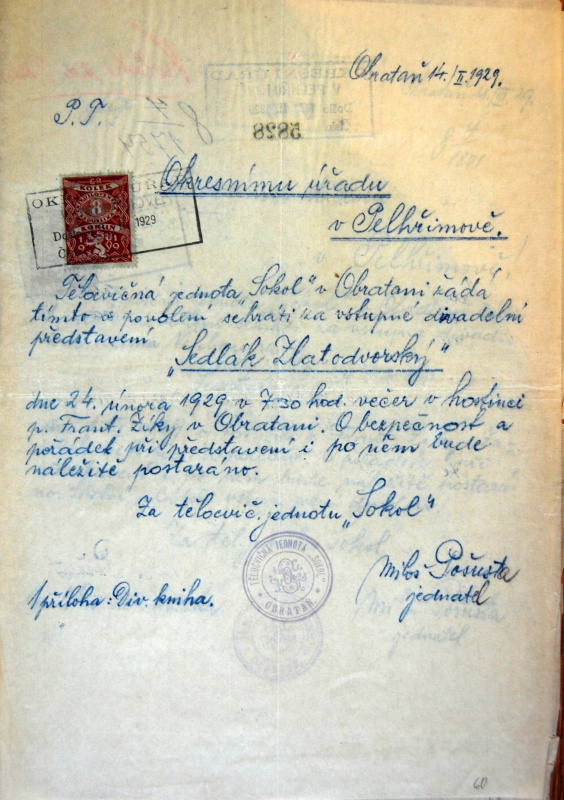 Obrataň 14./II. 1929.
P. T.
5828
Okresnímu úřadu
v Pelhřimově.
KOLEK
8
KORUN
1919
1929
Tělocvičná jednota „Sokol" v Obratani žádá
tímto o povolení sehráti za vstupné divadelní
představení
„Sedlák Zlatodvorský"
dne 24. února 1929 v 7.30 hod. večer v hostinci
p. Frant. Ziky v Obratani. O bezpečnost a
pořádek při představení i po něm bude
náležitě postaráno.
Za tělocvič. jednotu „Sokol"
TĚLOCVIČNÁ JEDNOTA „SOKOL"
OBRATAŇ
Miloš Pošusta
jednatel
1 příloha: Div. kniha.
60